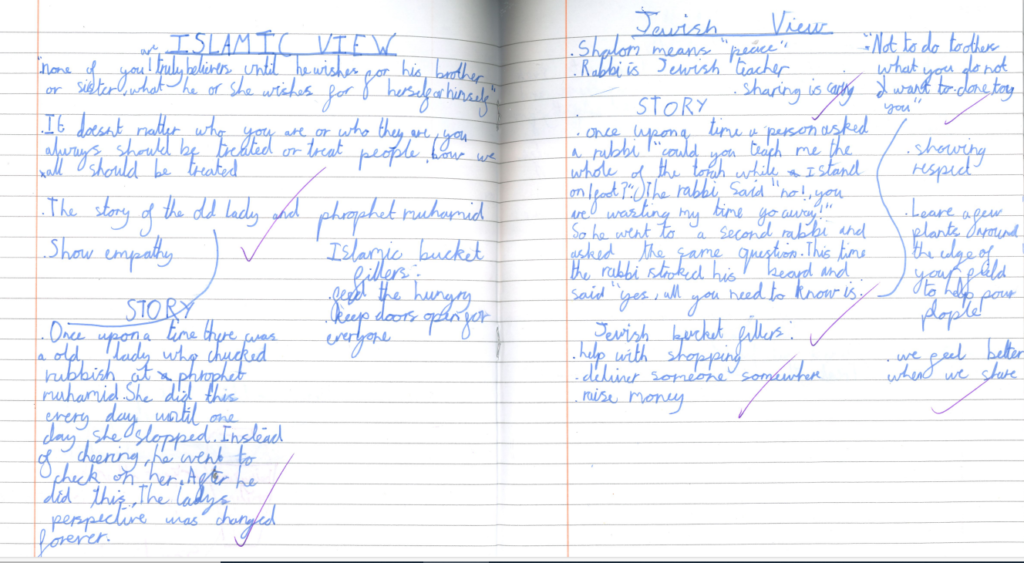 ISLAMIC VIEW
are
"none of you truly believers until he wishes for his brother
or sister, what he or she wishes for herself or himself"
.It doesnt matter who you are or who they are, you
always should be treated or treat people how we
all should be treated
.The story of the old lady and phrophet muhamid
.Show empathy
Islamic bucket
fillers:
.feed the hungry
.keep doors open for
everyone
STORY
.Once upon a time there was
a old lady who chucked
rubbish at phrophet
muhamid. She did this
every day until one
day she stopped. Instead
of cheering, he went to
check on her. After he
did this, The ladys
perspective was changed
forever.
Jewish View
.Shalom means "peace"
.Rabbi is Jewish teacher
.sharing is caring
"Not to do to other
what you do not
I want to done toy
you"
STORY
.once upona time a person asked
a rubbi "could you teach me the
whole of the torah while I stand
on 1 foot?" The rabbi said "no!, you
we wasting my time go away!"
So he went to a second rabbi and
asked the same question. This time
the rabbi stroked his beard and
said "yes, all you need to know is:
.showing
respect
.Leave a few
plants around
the edge of
your feild
to help pour
plople
Jewish bucket fillers:
.help with shopping
.deliver someone somewhere
.raise money
.we feel better
when we share